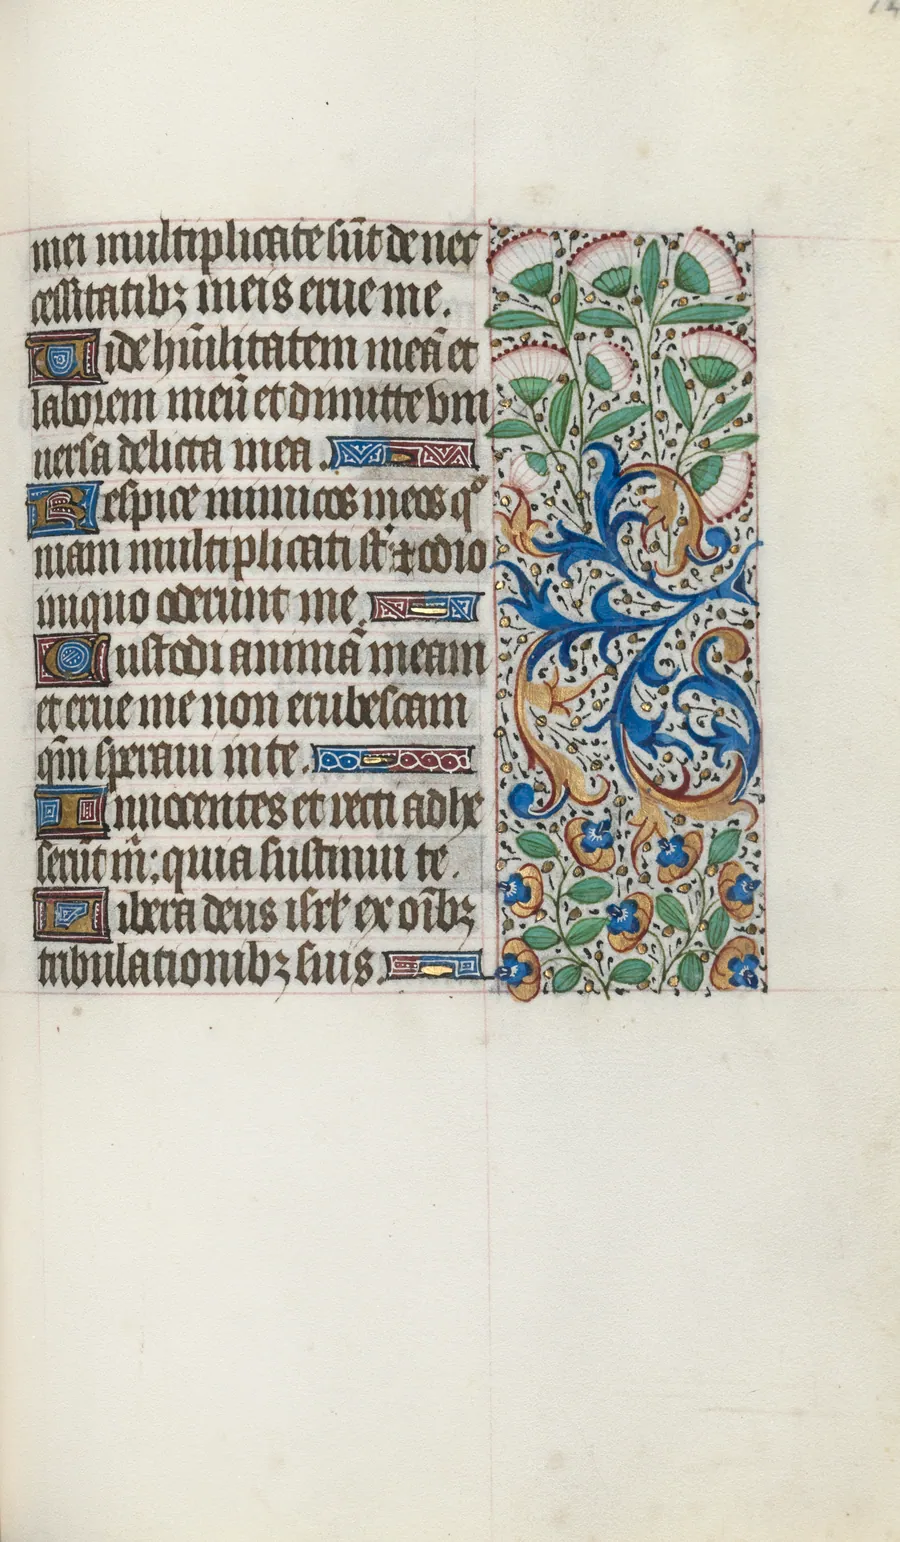 mei multiplicate sūt de nec
cessitatibꝫ meis erue me.
Vide hūilitatem meā et
laborem meū et dimitte vni
uersa delicta mea.
Respice inimicos meos qº
niam multiplicati st̄ ⁊ odio
iniquo oderunt me.
Custodi animā meam
et erue me non erubescam
qm̄ speraui in te.
Innocentes et recti adhe
serūt m̄: quia sustinui te.
Libera deus isrl̄ ex oībꝫ
tribulationibꝫ suis.